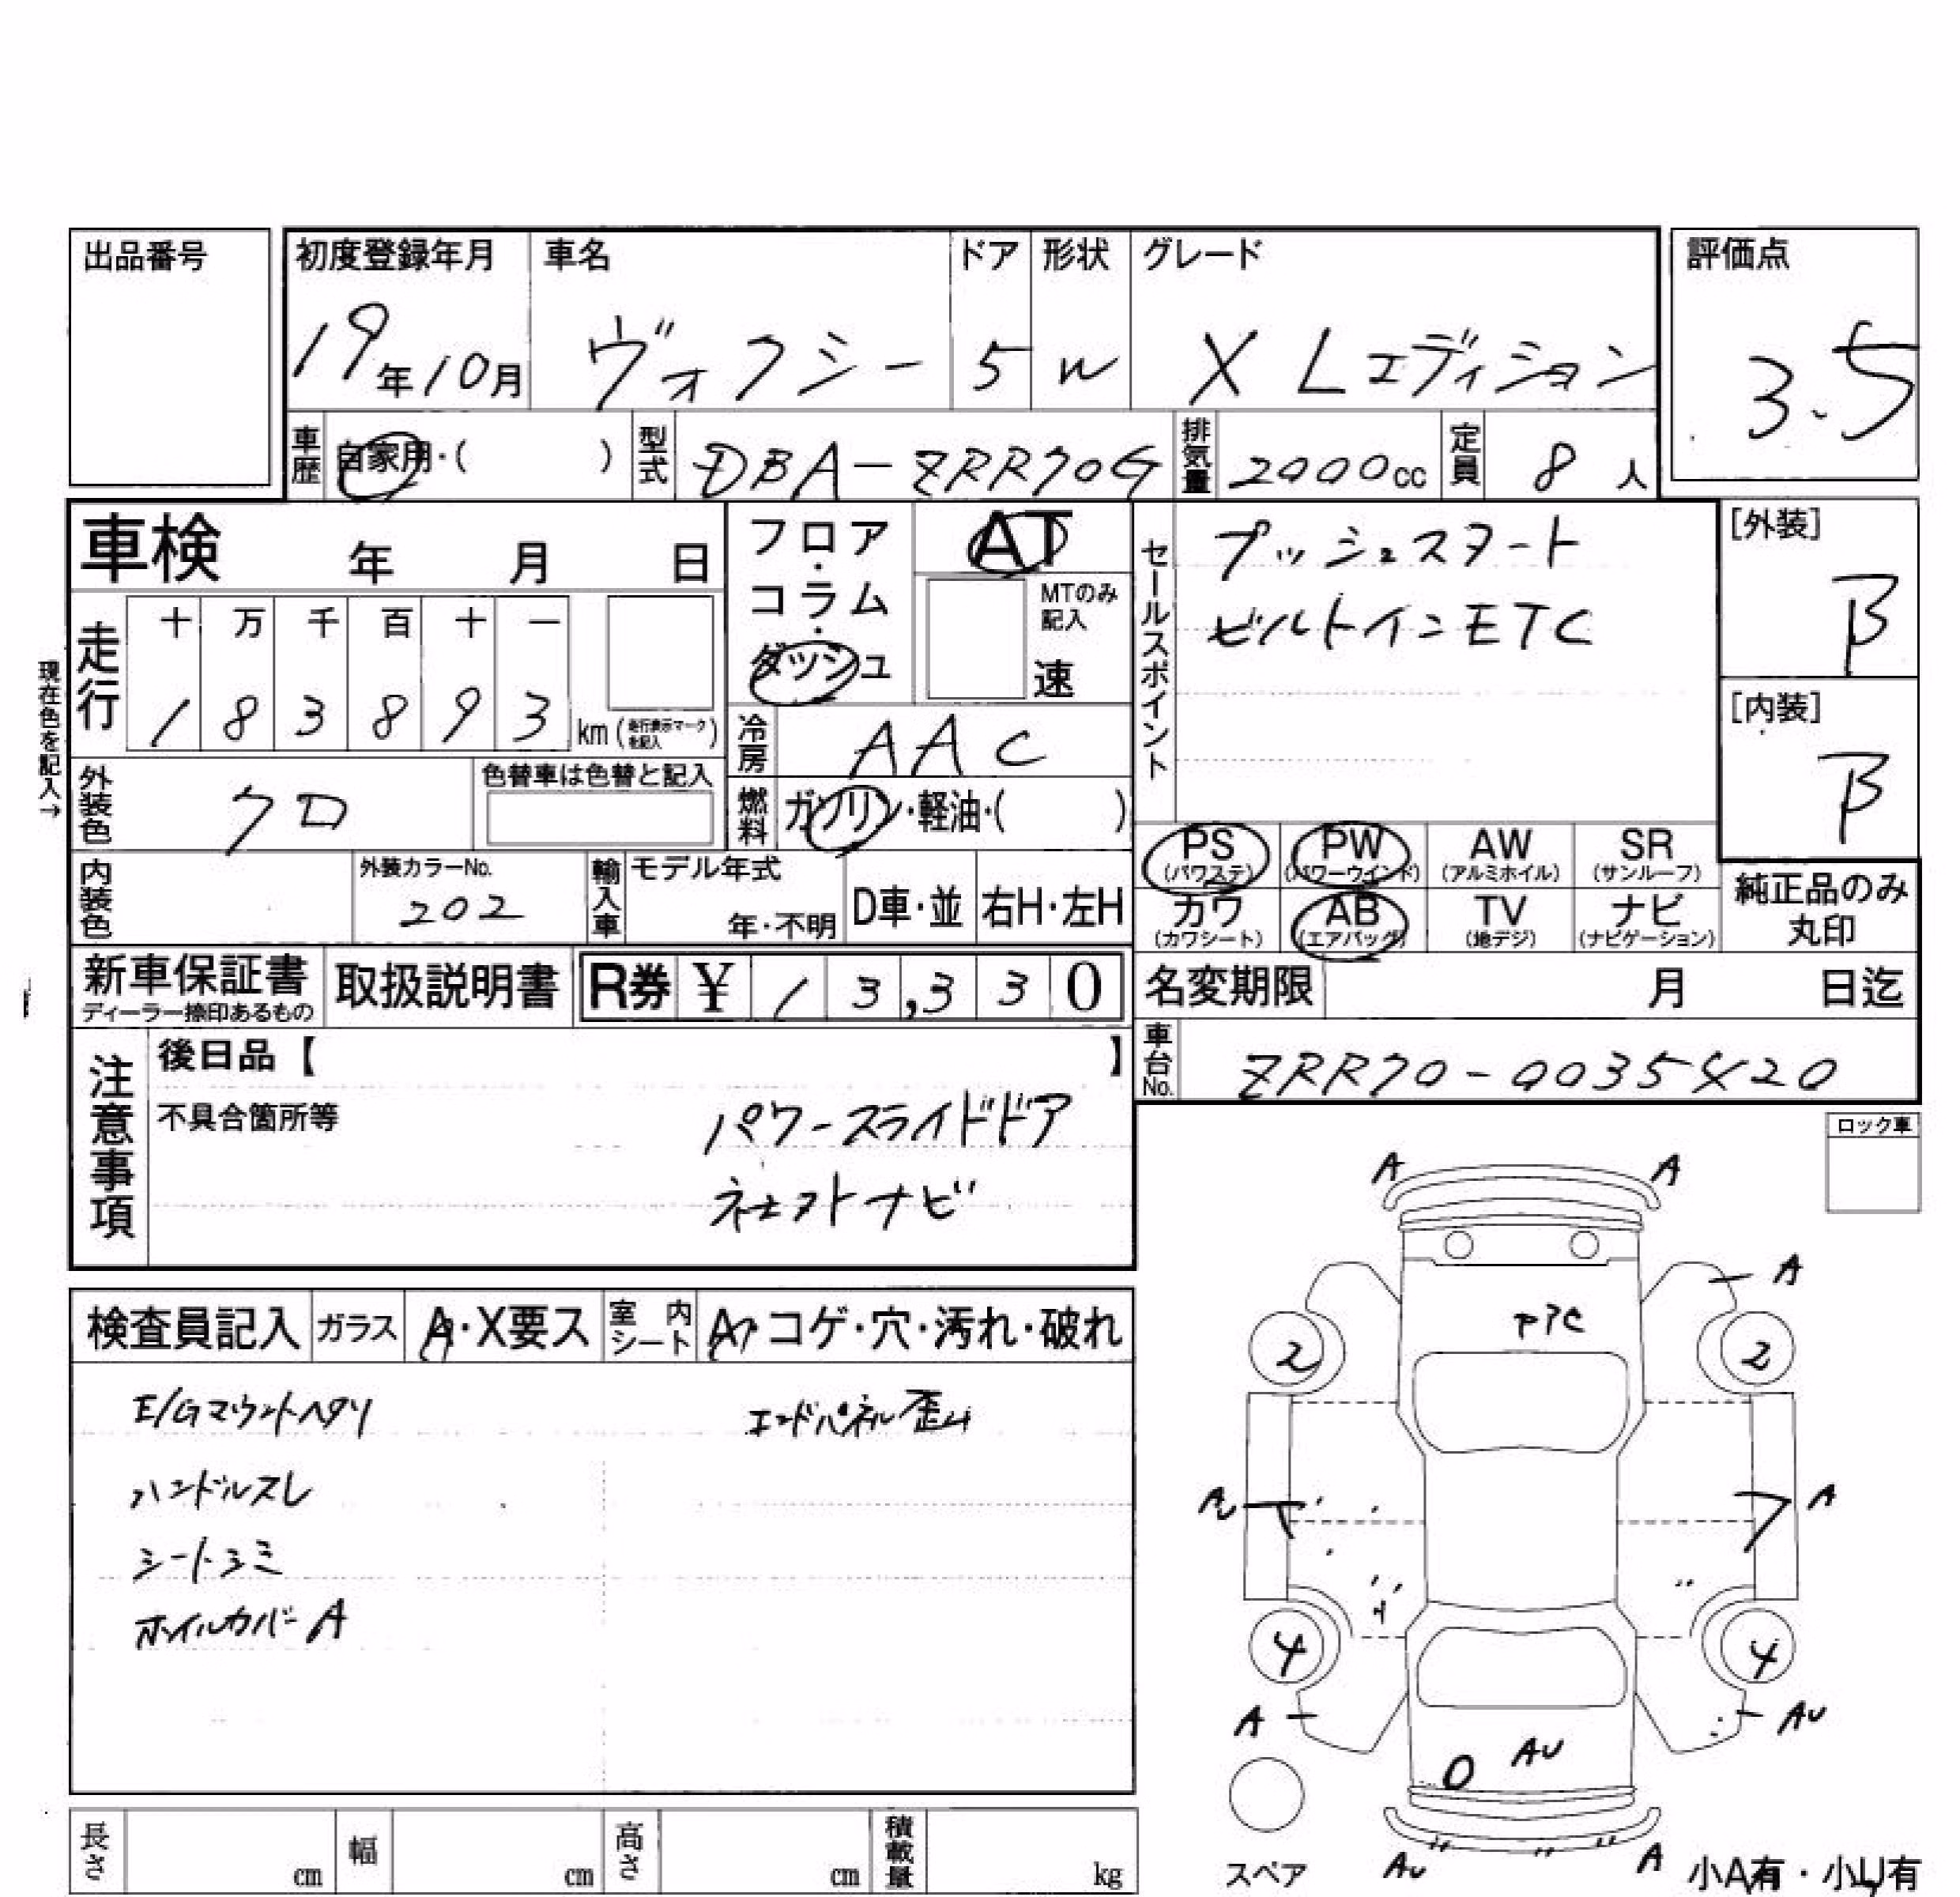 出品番号
初度登録年月 車名 ドア 形状 グレード 評価点
19年10月 ヴォクシー 5 W X Lエディション 3.5
車歴 自家用・( ) 型式 DBA-ZRR70G 排気量 2000cc 定員 8人
車検 年 月 日
フロア・コラム・ダッシュ AT
MTのみ記入
速
セールスポイント
プッシュスタート
ビルトインETC
[外装]
B
[内装]
B
現在色を記入→
走行 十 万 千 百 十 一
1 8 3 8 9 3 km (走行表示マークを記入)
冷房 AAC
外装色 クロ 色替車は色替と記入
燃料 ガソリン・軽油・( )
PS (パワステ) PW (パワーウインド) AW (アルミホイル) SR (サンルーフ)
カワ (カワシート) AB (エアバッグ) TV (地デジ) ナビ (ナビゲーション)
純正品のみ丸印
内装色 外装カラーNo. 202 輸入車 モデル年式 年・不明 D車・並 右H・左H
新車保証書 ディーラー捺印あるもの 取扱説明書 R券 ¥ 1 3,3 3 0
名変期限 月 日迄
車台No. ZRR70-0035420
注意事項
後日品【 】
不具合箇所等
パワースライドドア
社外ナビ
ロック車
検査員記入 ガラス A・X要ス 室内シート A・コゲ・穴・汚れ・破れ
E/Gマウントヘタリ エンドパネル歪ム
ハンドルスレ
シートシミ
ホイルカバーA
A A
A
2 2
A
4 4
A AU
AU
AU A
スペア 小A有・小U有
長さ cm 幅 cm 高さ cm 積載量 kg